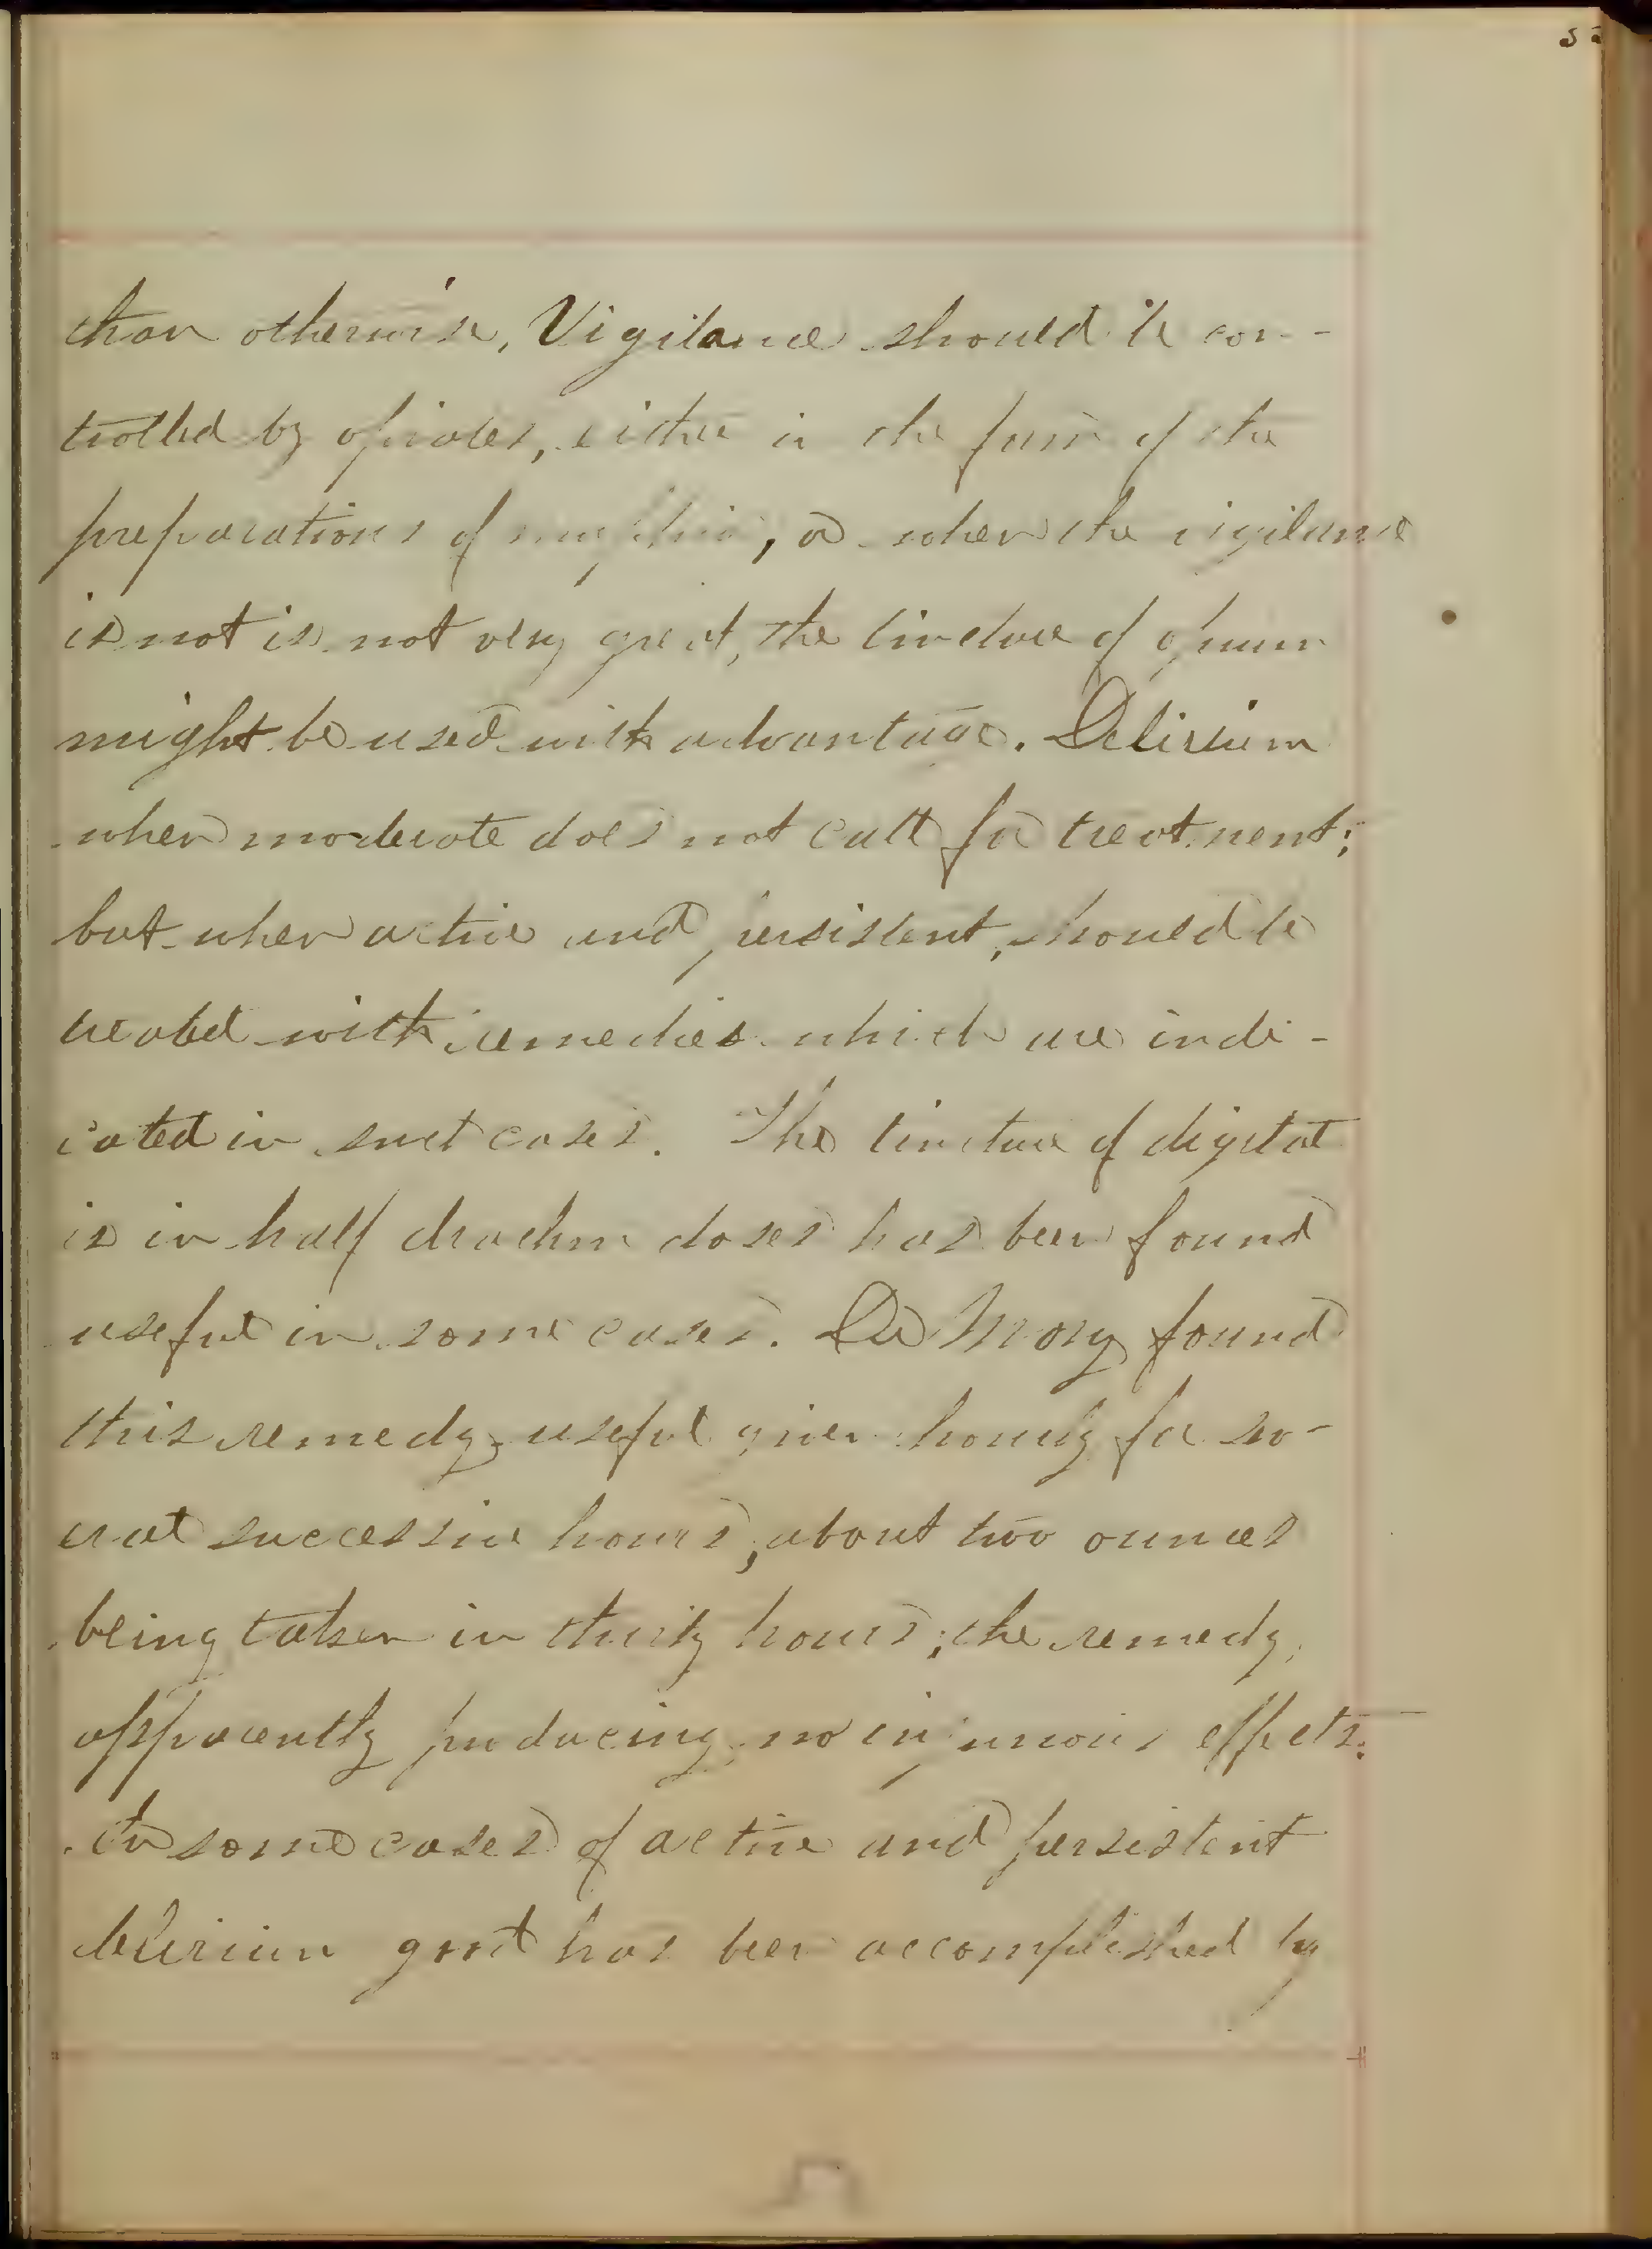 than otherwise, Vigilance should be con-
trolled by opiates, either in the form of the
preparations of morphia, or when the vigilance
is not is not very great, the tincture of opium
might be used with advantage. Delirium
when moderate does not call for treatment;
but when active and persistent, should be
treated with remedies which are indi-
cated in such cases. The tincture of digital
is in half drachm doses has been found
useful in some cases. Dr Mory found
this remedy useful given hourly for sev-
eral successive hours, about two ounces
being taken in thirty hours; the remedy,
apparently producing no injurious effects.
In some cases of active and persistent
delirium good has been accomplished by